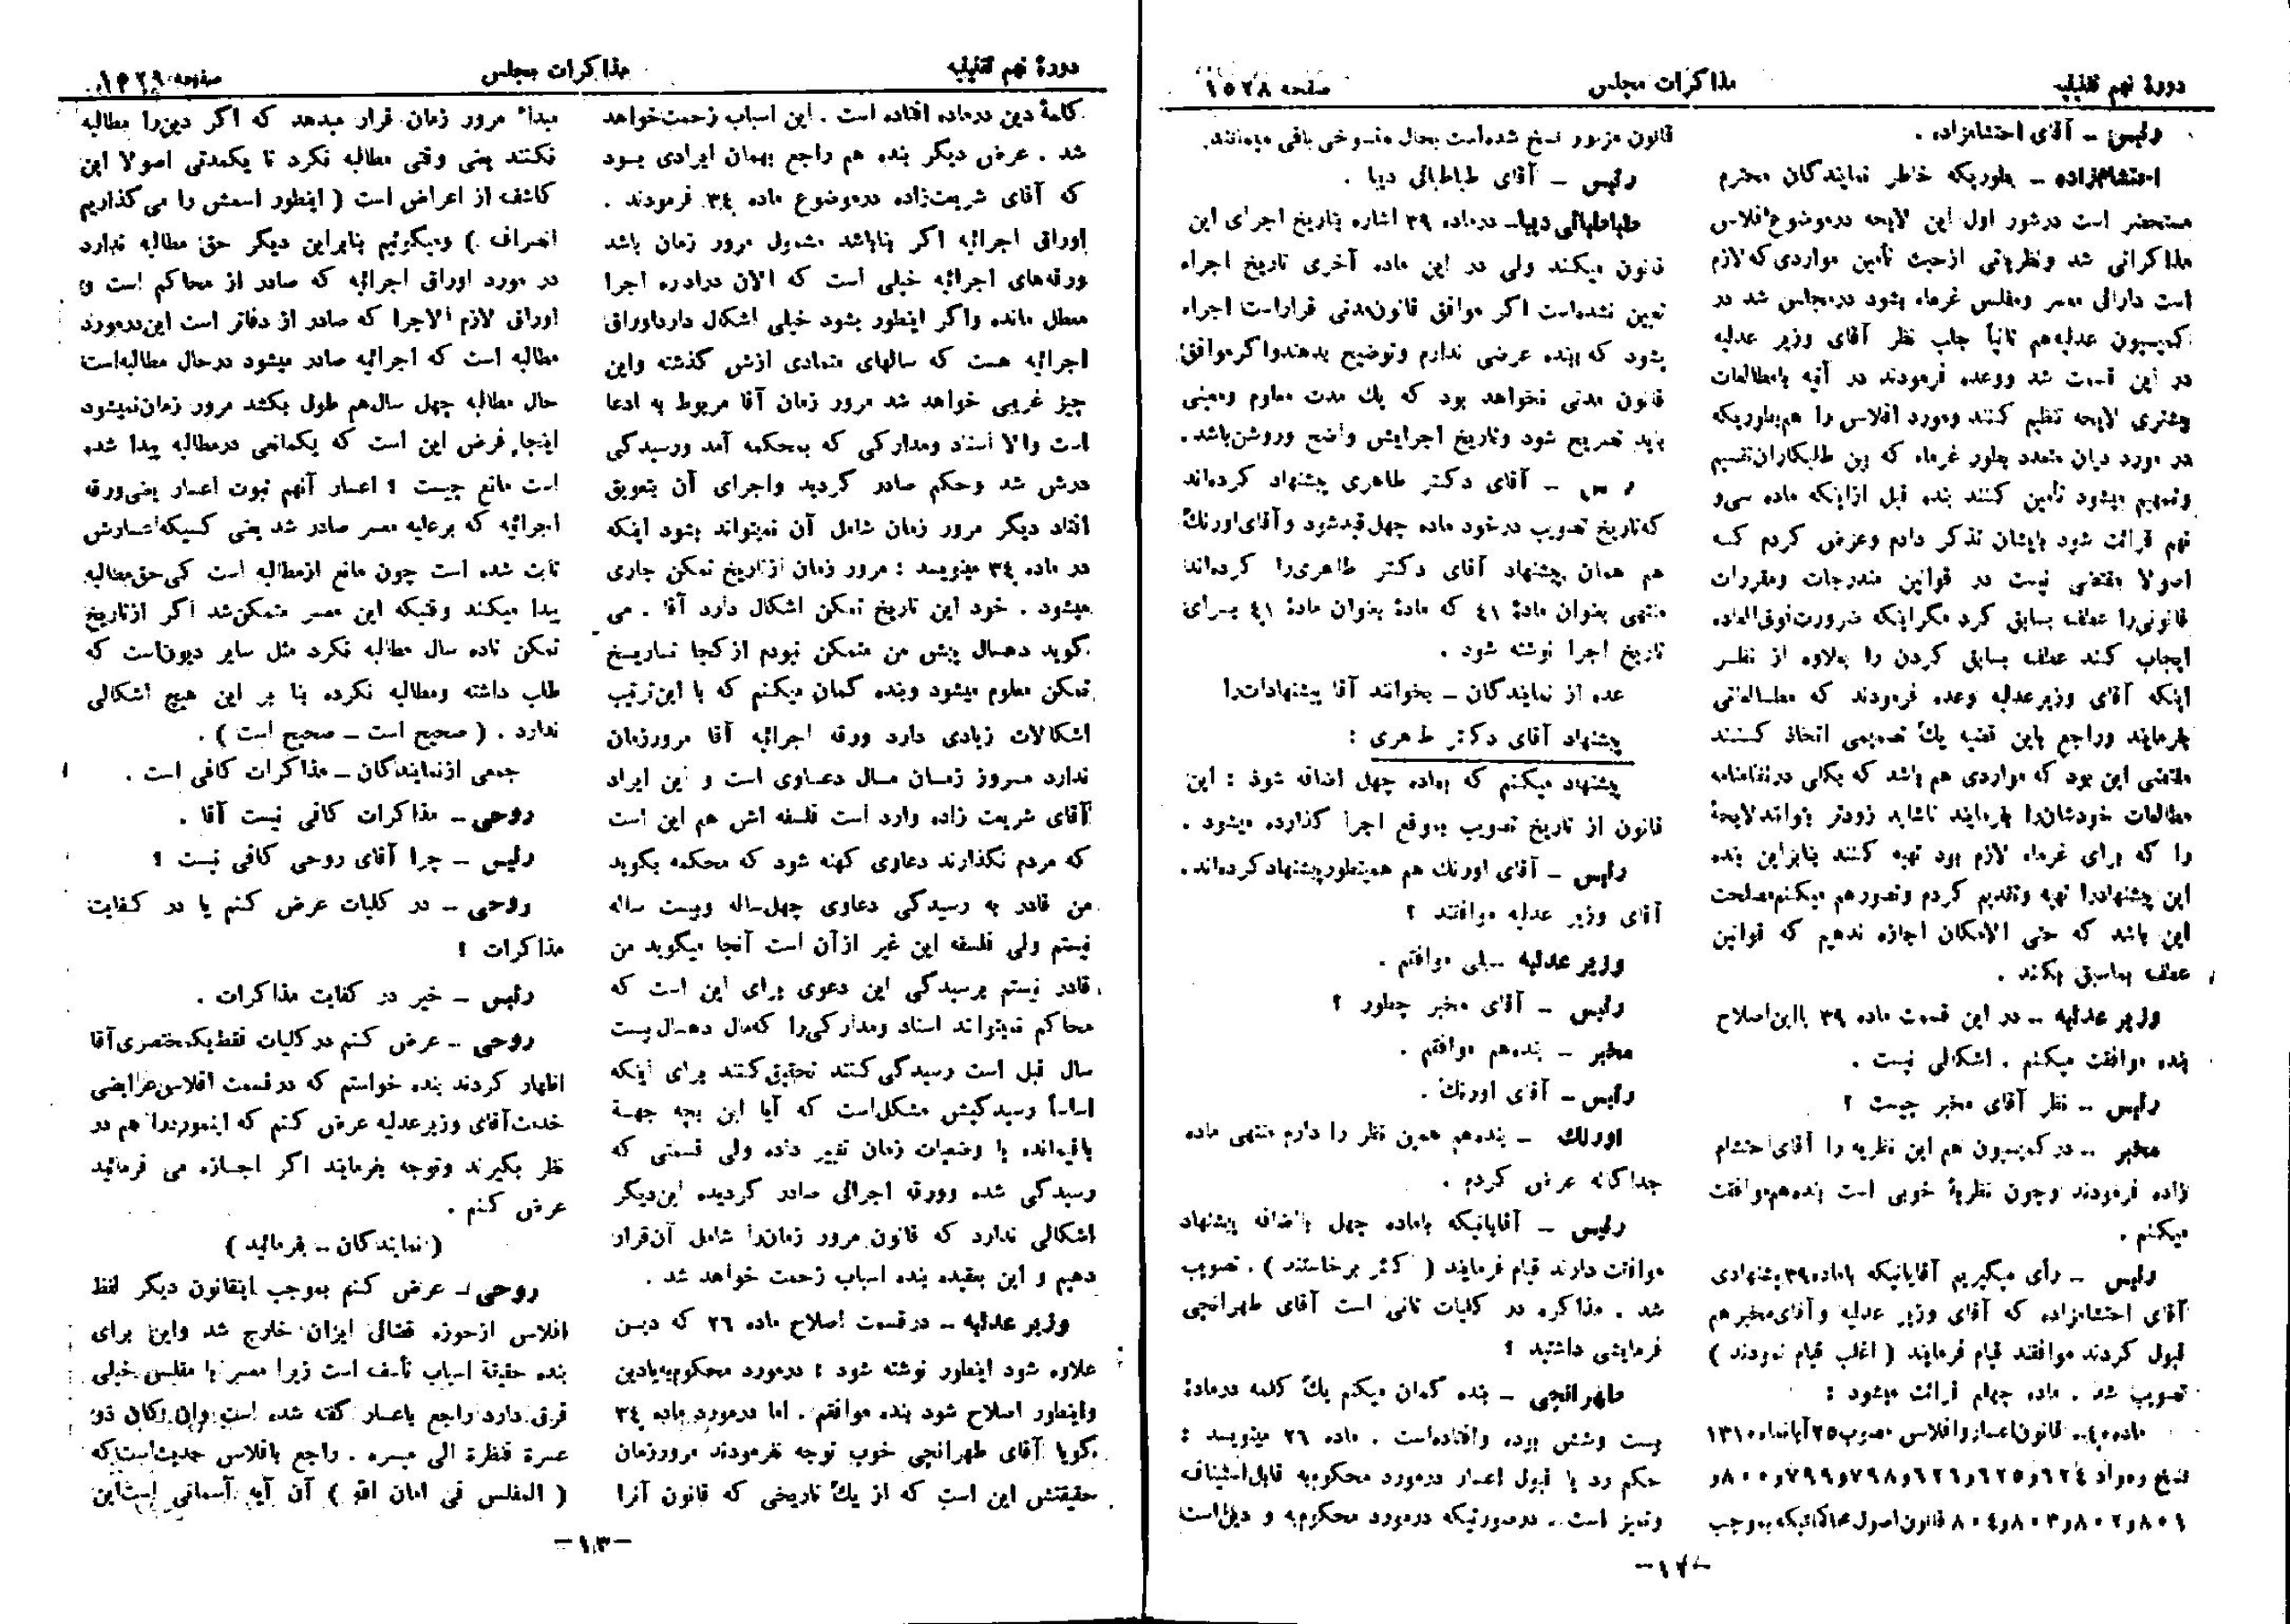 دورهٔ نهم تقنینیه
مذاکرات مجلس
صفحه ۱۵۲۸
رئیس – آقای احتشامزاده .
احتشامزاده – بطوریکه خاطر نمایندگان محترم
مستحضر است درشور اول این لایحه درموضوع افلاس
مذاکراتی شد ونظریاتی ازحیث تأمین مواردی که لازم
است دارائی معسر ومفلس غرماء بشود درمجلس شد در
کمیسیون عدلیه هم ثانیاً جلب نظر آقای وزیر عدلیه
در این قسمت شد ووعده فرمودند در آتیه بامطالعات
بیشتری لایحه تنظیم کنند ومورد افلاس را هم بطوریکه
در مورد دیان متعدد بطور غرماء که بین طلبکاران تقسیم
وتسهیم میشود تأمین کنند بنده قبل ازاینکه ماده سی و
نهم قرائت شود بایشان تذکر دادم وعرض کردم که
اصولا مقتضی نیست در قوانین مندرجات ومقررات
قانونی را عطف بسابق کرد مگر اینکه ضرورت فوق العاده
ایجاب کند عطف بسابق کردن را بعلاوه از نظر
اینکه آقای وزیر عدلیه وعده فرمودند که مطالعاتی
بفرمایند وراجع باین قضیه یک تصمیمی اتخاذ کنند
مقتضی این بود که مواردی هم باشد که بکلی درنظامنامه
مطالعات خودشان را بفرمایند تاشاید زودتر بتوانند لایحهٔ
را که برای غرماء لازم بود تهیه کنند بنابراین بنده
این پیشنهادرا تهیه وتقدیم کردم وتصورهم میکنم مصلحت
این باشد که حتی الامکان اجازه ندهیم که قوانین
عطف بماسبق بکند .
وزیر عدلیه – در این قسمت ماده ۳۹ بااین اصلاح
بنده موافقت میکنم . اشکالی نیست .
رئیس – نظر آقای مخبر چیست ؟
مخبر – در کمیسیون هم این نظریه را آقای احتشام
زاده فرمودند وچون نظریهٔ خوبی است بنده هم موافقت
میکنم .
رئیس – رأی میگیریم آقایانیکه باماده ۳۹ پیشنهادی
آقای احتشامزاده که آقای وزیر عدلیه و آقای مخبر هم
قبول کردند موافقند قیام فرمایند ( اغلب قیام نمودند )
تصویب شد . ماده چهلم قرائت میشود :
ماده ۴۰ – قانون اعسار و افلاس مصوب ۲۵ آبانماه ۱۳۱۰
نسخ ومواد ۶۲۴ و ۶۲۵ و ۶۲۶ و ۷۹۸ و ۷۹۹ و ۸۰۰ و
۸۰۱ و ۸۰۲ و ۸۰۳ و ۸۰۴ قانون اصول محاکماتیکه بموجب
قانون مزبور نسخ شده است بحال منسوخی باقی میمانند.
رئیس – آقای طباطبائی دیبا .
طباطبائی دیبا – درماده ۳۹ اشاره بتاریخ اجرای این
قانون میکند ولی در این ماده آخری تاریخ اجراء
تعیین نشده است اگر موافق قانون مدنی قراراست اجراء
بشود که بنده عرضی ندارم وتوضیح بدهند واگر موافق
قانون مدنی نخواهد بود که یك مدت معلوم ومعینی
باید تصریح شود وتاریخ اجرایش واضح وروشن باشد .
رئیس – آقای دکتر طاهری پیشنهاد کرده اند
که تاریخ تصویب درخود ماده چهل قیدشود و آقای اورنگ
هم همان پیشنهاد آقای دکتر طاهری را کرده اند
منتهی بعنوان مادهٔ ۴۱ که مادهٔ بعنوان مادهٔ ۴۱ برای
تاریخ اجرا نوشته شود .
عده از نمایندگان – بخوانند آقا پیشنهادات را
پیشنهاد آقای دکتر طاهری :
پیشنهاد میکنم که بماده چهل اضافه شود : این
قانون از تاریخ تصویب بموقع اجرا گذارده میشود .
رئیس – آقای اورنك هم همینطور پیشنهاد کرده اند .
آقای وزیر عدلیه موافقند ؟
وزیر عدلیه – بلی موافقم .
رئیس – آقای مخبر چطور ؟
مخبر – بنده هم موافقم .
رئیس – آقای اورنك .
اورنك – بنده هم همین نظر را دارم منتهی ماده
جداگانه عرض کردم .
رئیس – آقایانیکه باماده چهل باضافه پیشنهاد
موافقت دارند قیام فرمایند ( اکثر برخاستند ) . تصویب
شد . مذاکره در کلیات ثانی است آقای طهرانچی
فرمایشی داشتید ؟
طهرانچی – بنده گمان میکنم یك کلمه درمادهٔ
بیست وشش بوده وافتاده است . ماده ۲۶ مینویسد :
حکم رد یا قبول اعسار درمورد محکوم به قابل استیناف
وتمیز است . درصورتیکه درمورد محکوم به و دین است
–۱۲–
دورهٔ نهم تقنینیه
مذاکرات مجلس
صفحه ۱۵۲۹
کلمهٔ دین درماده افتاده است . این اسباب زحمت خواهد
شد . عرض دیگر بنده هم راجع بهمان ایرادی بود
که آقای شریعت زاده درموضوع ماده ۳۴ فرمودند .
اوراق اجرائیه اگر بناباشد مشمول مرور زمان باشد
ورقه های اجرائیه خیلی است که الان دراداره اجرا
معطل مانده واگر اینطور بشود خیلی اشکال دارد اوراق
اجرائیه هست که سالهای متمادی ازش گذشته واین
چیز غریبی خواهد شد مرور زمان آقا مربوط به ادعا
است والا اسناد ومدارکی که بمحکمه آمد ورسیدگی
درش شد وحکم صادر گردید واجرای آن بتعویق
افتاد دیگر مرور زمان شامل آن نمیتواند بشود اینکه
در ماده ۳۴ مینویسد : مرور زمان ازتاریخ تمکن جاری
میشود . خود این تاریخ تمکن اشکال دارد آقا . می
گوید دهسال پیش من متمکن نبودم ازکجا تاریخ
تمکن معلوم میشود وبنده گمان میکنم که با این ترتیب
اشکالات زیادی دارد ورقه اجرائیه آقا مرورزمان
ندارد مرور زمان مال دعاوی است و این ایراد
آقای شریعت زاده وارد است فلسفه اش هم این است
که مردم نگذارند دعاوی کهنه شود که محکمه بگوید
من قادر به رسیدگی دعاوی چهل ساله وبیست ساله
نیستم ولی فلسفه این غیر ازآن است آنجا میگوید من
قادر نیستم برسیدگی این دعوی برای این است که
محاکم نمیتواند اسناد ومدارکی را که مال دهسال بیست
سال قبل است رسیدگی کنند تحقیق کنند برای اینکه
اساساً رسیدگیش مشکل است که آیا این بچه جهة
باقیمانده یا وضعیات زمان تغییر داده ولی قسمتی که
رسیدگی شده وورقه اجرائی صادر گردیده این دیگر
اشکالی ندارد که قانون مرور زمان را شامل آن قرار
دهیم و این بعقیده بنده اسباب زحمت خواهد شد .
وزیر عدلیه – درقسمت اصلاح ماده ۲۶ که دین
علاوه شود اینطور نوشته شود : درمورد محکوم به یادین
واینطور اصلاح شود بنده موافقم . اما درمورد ماده ۳۴
گویا آقای طهرانچی خوب توجه نفرمودند مرورزمان
حقیقتش این است که از یك تاریخی که قانون آنرا
مبداء مرور زمان قرار میدهد که اگر دین را مطالبه
نکنند یعنی وقتی مطالبه نکرد تا یکمدتی اصولا این
کاشف از اعراض است ( اینطور اسمش را می گذاریم
انصراف ) ومیگوئیم بنابراین دیگر حق مطالبه ندارد
در مورد اوراق اجرائیه که صادر از محاکم است و
اوراق لازم الاجرا که صادر از دفاتر است این درمورد
مطالبه است که اجرائیه صادر میشود درحال مطالبه است
حال مطالبه چهل سال هم طول بکشد مرور زمان نمیشود
اینجا فرض این است که یکمانعی درمطالبه پیدا شده
است مانع چیست ؟ اعسار آنهم ثبوت اعسار یعنی ورقه
اجرائیه که برعلیه معسر صادر شد یعنی کسیکه اعسارش
ثابت شده است چون مانع ازمطالبه است کی حق مطالبه
پیدا میکند وقتیکه این معسر متمکن شد اگر ازتاریخ
تمکن تاده سال مطالبه نکرد مثل سایر دیون است که
طلب داشته ومطالبه نکرده بنا بر این هیچ اشکالی
ندارد . ( صحیح است – صحیح است ) .
جمعی ازنمایندگان – مذاکرات کافی است .
روحی – مذاکرات کافی نیست آقا .
رئیس – چرا آقای روحی کافی نیست ؟
روحی – در کلیات عرض کنم یا در کفایت
مذاکرات ؟
رئیس – خیر در کفایت مذاکرات .
روحی – عرض کنم در کلیات فقط یک مختصری آقا
اظهار کردند بنده خواستم که درقسمت افلاس عرایضی
خدمت آقای وزیرعدلیه عرض کنم که اینموردرا هم در
نظر بگیرند وتوجه بفرمایند اگر اجازه می فرمائید
عرض کنم .
( نمایندگان – بفرمائید )
روحی – عرض کنم بموجب اینقانون دیگر لفظ
افلاس ازحوزه قضائی ایران خارج شد واین برای
بنده حقیقة اسباب تأسف است زیرا معسر با مفلس خیلی
فرق دارد راجع باعسار گفته شده است وان کان ذو
عسرة فنظرة الی میسره . راجع بافلاس حدیث است که
( المفلس فی امان الله ) آن آیه آسمانی است این
–۱۳–